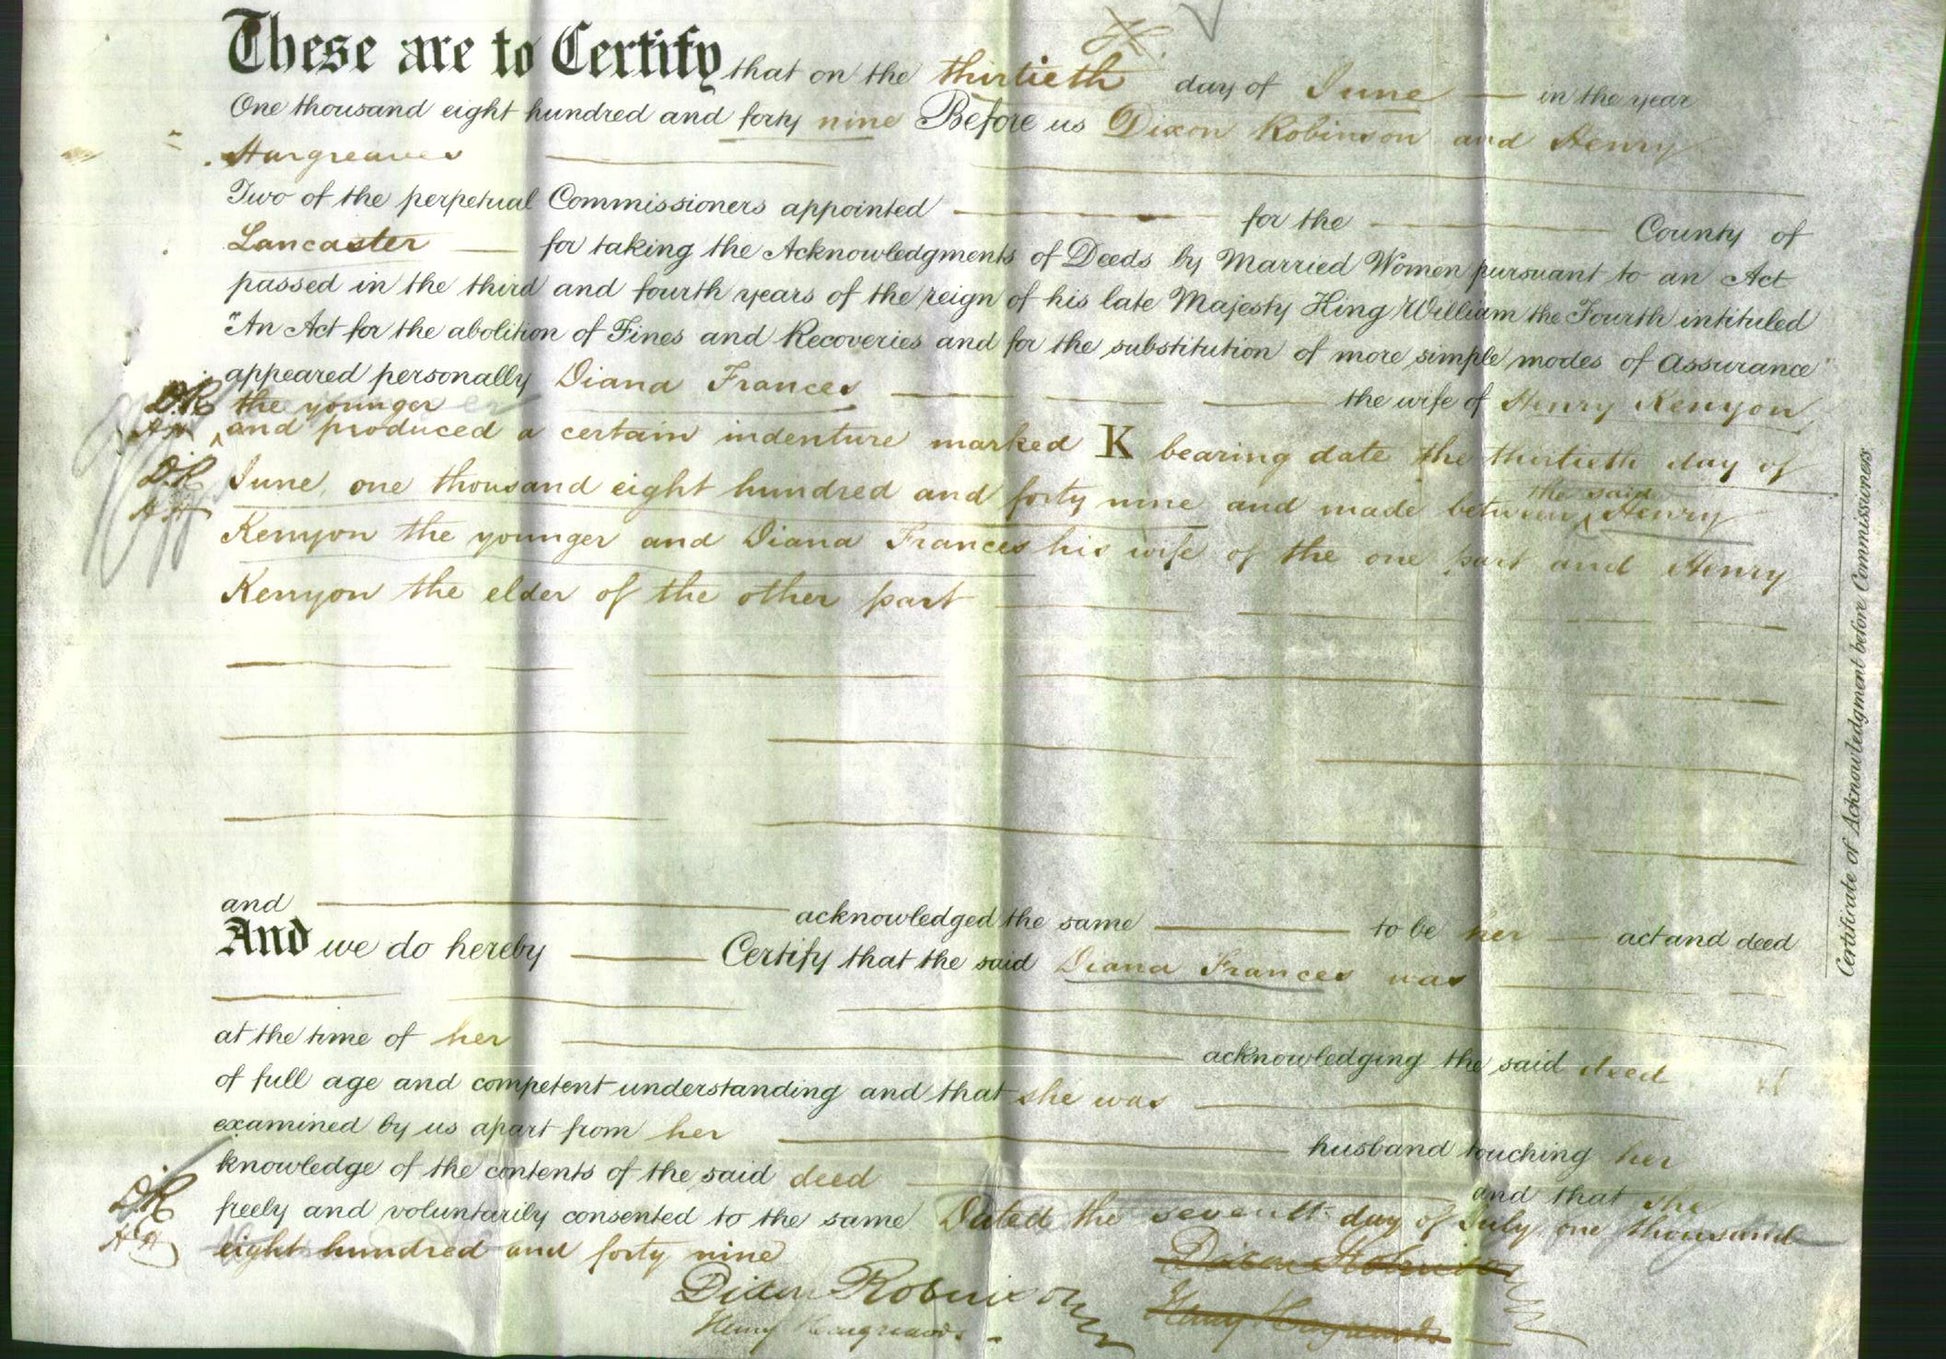 These are to Certify that on the thirtieth day of June in the year
One thousand eight hundred and forty nine Before us Dixon Robinson and Henry
Hargreaves
Two of the perpetual Commissioners appointed for the County of
Lancaster for taking the Acknowledgments of Deeds by Married Women pursuant to an Act
passed in the third and fourth years of the reign of his late Majesty King William the Fourth intituled
"An Act for the abolition of Fines and Recoveries and for the substitution of more simple modes of Assurance"
appeared personally Diana Frances the wife of Henry Kenyon
D.R the younger
H.H and produced a certain indenture marked K bearing date the thirtieth day of
the said
D.R June, one thousand eight hundred and forty nine and made between Henry
H.H Kenyon the younger and Diana Frances his wife of the one part and Henry
Kenyon the elder of the other part
and acknowledged the same to be her act and deed
And we do hereby Certify that the said Diana Frances was
at the time of her acknowledging the said deed
of full age and competent understanding and that she was
examined by us apart from her husband touching her
knowledge of the contents of the said deed and that she
D.R freely and voluntarily consented to the same Dated the seventh day of July one thousand
H.H eight hundred and forty nine
Dixon Robinson Dixon Robinson
Henry Hargreaves Henry Hargreaves
Certificate of Acknowledgment before Commissioners